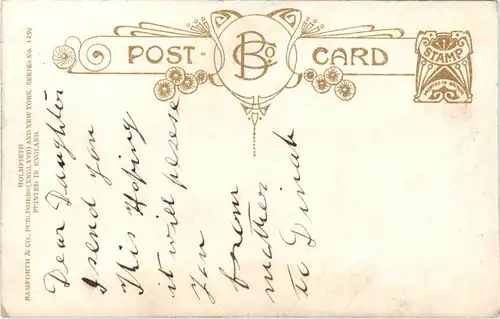 POST CARD
B Co.
STAMP
PRINTED IN
BAMFORTH & CO., PUBLISHERS (ENGLAND) AND NEW YORK. SERIES No. 1259
HOLMFIRTH
PRINTED IN ENGLAND.
Dear Daughter
I send you
This Hoping
it will plese
you
from
mother
to Dinah